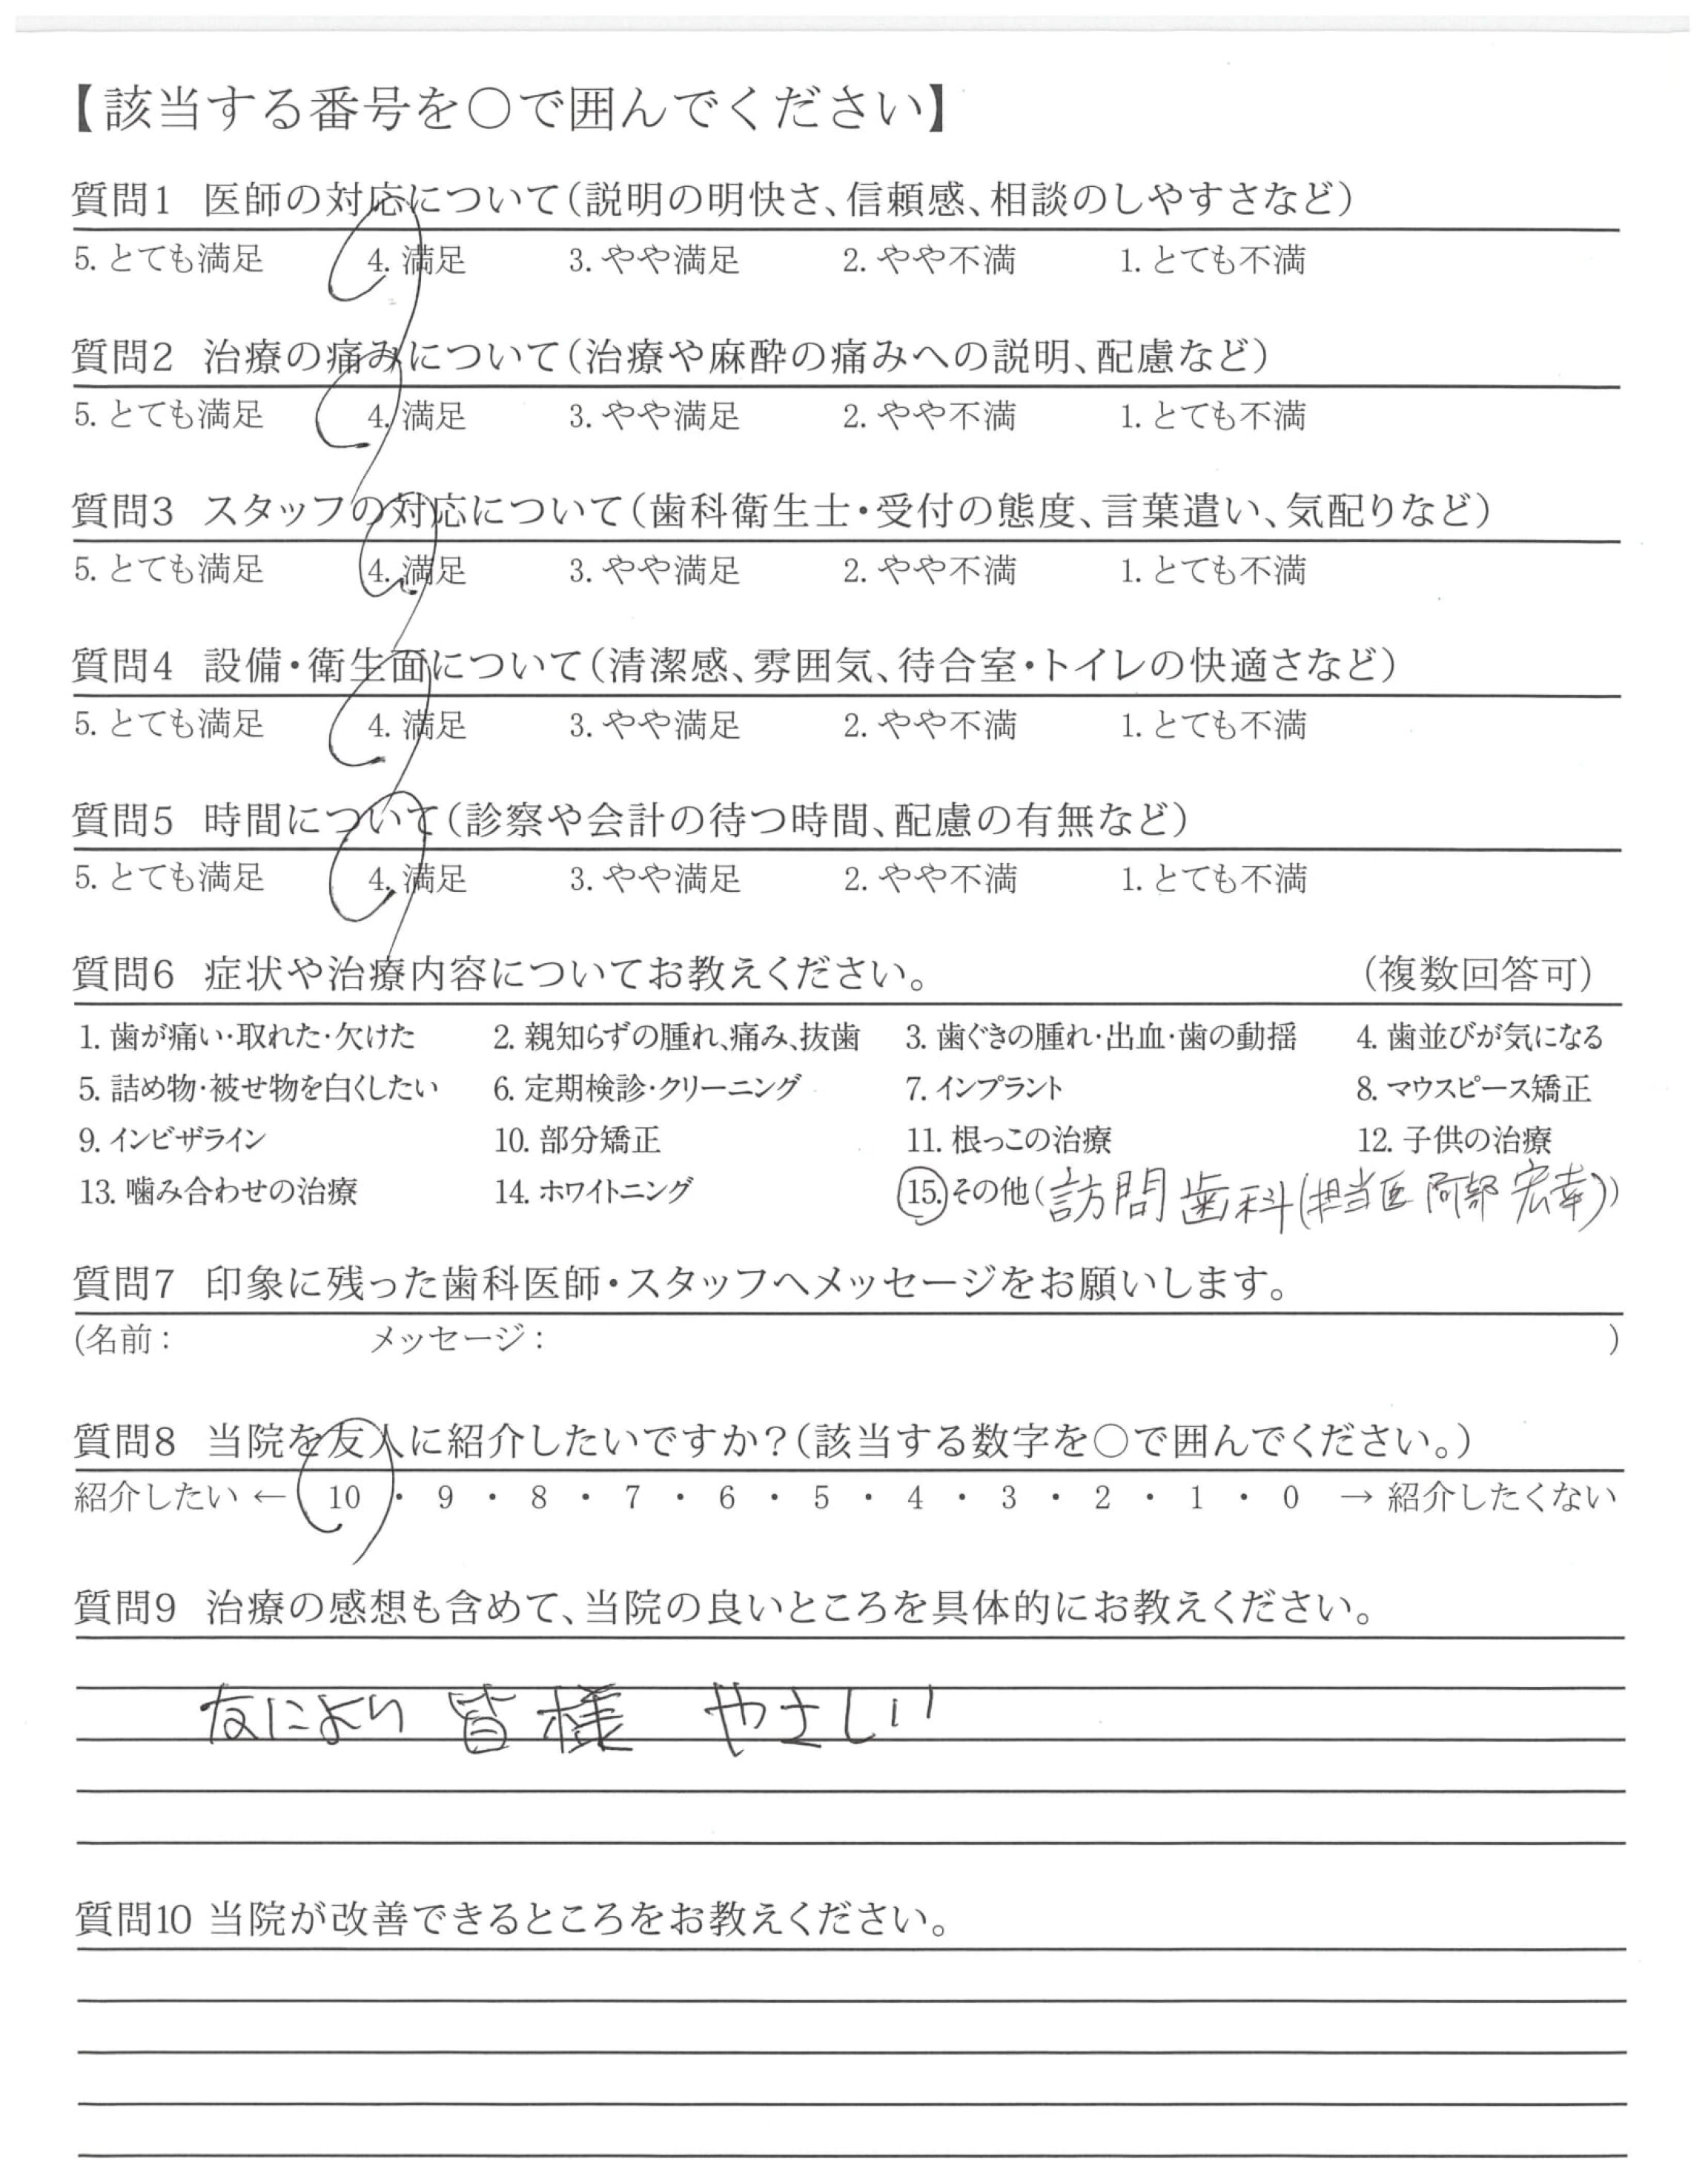 【該当する番号を○で囲んでください】
質問1 医師の対応について(説明の明快さ、信頼感、相談のしやすさなど)
5. とても満足 4. 満足 3. やや満足 2. やや不満 1. とても不満
質問2 治療の痛みについて(治療や麻酔の痛みへの説明、配慮など)
5. とても満足 4. 満足 3. やや満足 2. やや不満 1. とても不満
質問3 スタッフの対応について(歯科衛生士・受付の態度、言葉遣い、気配りなど)
5. とても満足 4. 満足 3. やや満足 2. やや不満 1. とても不満
質問4 設備・衛生面について(清潔感、雰囲気、待合室・トイレの快適さなど)
5. とても満足 4. 満足 3. やや満足 2. やや不満 1. とても不満
質問5 時間について(診察や会計の待つ時間、配慮の有無など)
5. とても満足 4. 満足 3. やや満足 2. やや不満 1. とても不満
質問6 症状や治療内容についてお教えください。 (複数回答可)
1. 歯が痛い・取れた・欠けた 2. 親知らずの腫れ、痛み、抜歯 3. 歯ぐきの腫れ・出血・歯の動揺 4. 歯並びが気になる
5. 詰め物・被せ物を白くしたい 6. 定期検診・クリーニング 7. インプラント 8. マウスピース矯正
9. インビザライン 10. 部分矯正 11. 根っこの治療 12. 子供の治療
13. 噛み合わせの治療 14. ホワイトニング 15. その他(訪問歯科(担当医 阿部 宏幸))
質問7 印象に残った歯科医師・スタッフへメッセージをお願いします。
(名前: メッセージ: )
質問8 当院を友人に紹介したいですか?(該当する数字を○で囲んでください。)
紹介したい ← 10 ・ 9 ・ 8 ・ 7 ・ 6 ・ 5 ・ 4 ・ 3 ・ 2 ・ 1 ・ 0 → 紹介したくない
質問9 治療の感想も含めて、当院の良いところを具体的にお教えください。
なにより 皆様 やさしい
質問10 当院が改善できるところをお教えください。